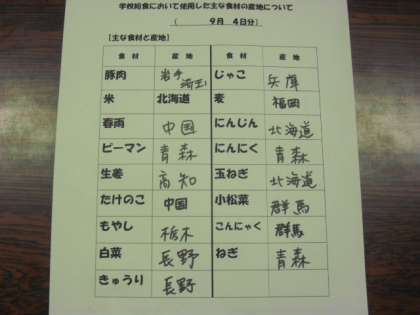 学校給食において使用した主な食材の産地について
( 9月 4日分)
[主な食材と産地]
食材 産地 食材 産地
豚肉 岩手 埼玉 じゃこ 兵庫
米 北海道 麦 福岡
春雨 中国 にんじん 北海道
ピーマン 青森 にんにく 青森
生姜 高知 玉ねぎ 北海道
たけのこ 中国 小松菜 群馬
もやし 栃木 こんにゃく 群馬
白菜 長野 ねぎ 青森
きゅうり 長野